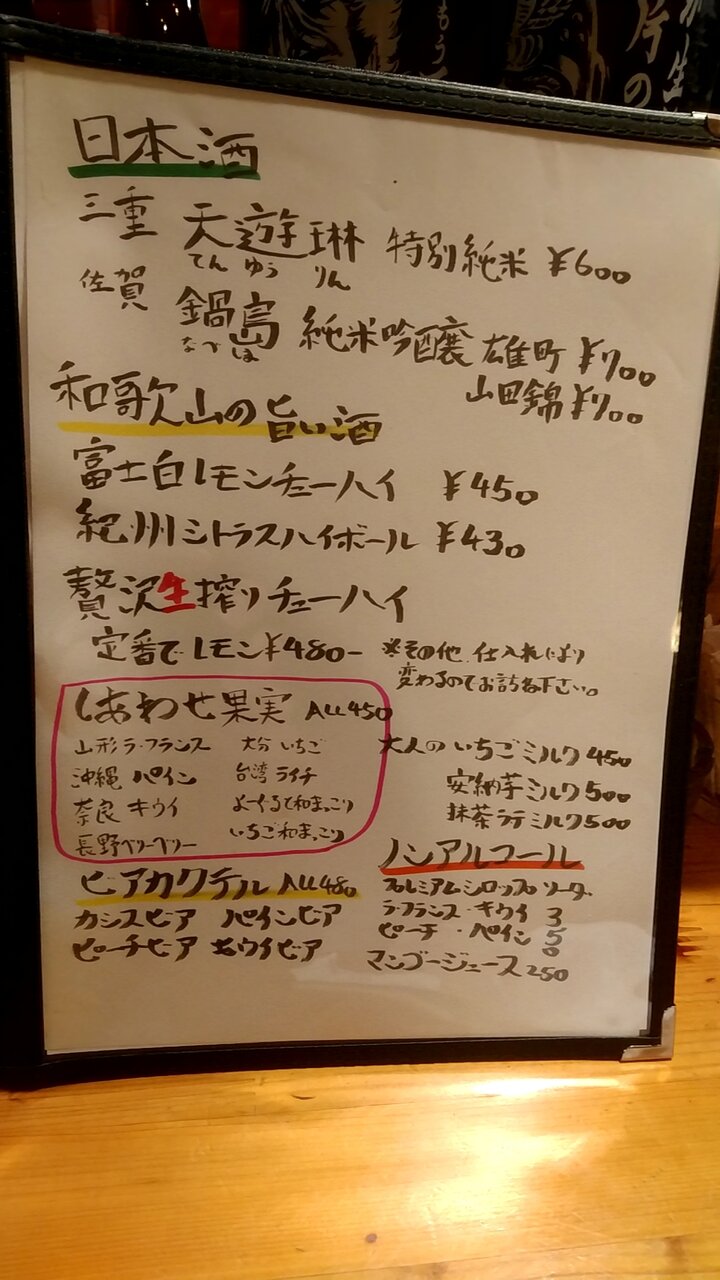 日本酒
三重 天遊琳 特別純米 ¥600
てん ゆう りん
佐賀 鍋島 純米吟醸 雄町 ¥700
なべしま
山田錦 ¥700
和歌山の旨い酒
富士白レモンチューハイ ¥450
紀州シトラスハイボール ¥430
贅沢生搾りチューハイ
定番でレモン¥480- ※その他、仕入れにより
変わるのでお訪ね下さい。
しあわせ果実 ALL450
山形ラ・フランス 大分いちご
沖縄パイン 台湾ライチ
奈良キウイ よーぐるて和まっこり
長野ベリーベリー いちご和まっこり
大人のいちごミルク 450
安納芋ミルク500
抹茶ラテミルク500
ビアカクテル ALL480
カシスビア パインビア
ピーチビア キウイビア
ノンアルコール
プレミアムシロップソーダ
ラ・フランス・キウイ 3
ピーチ・パイン 5
0
マンゴージュース250